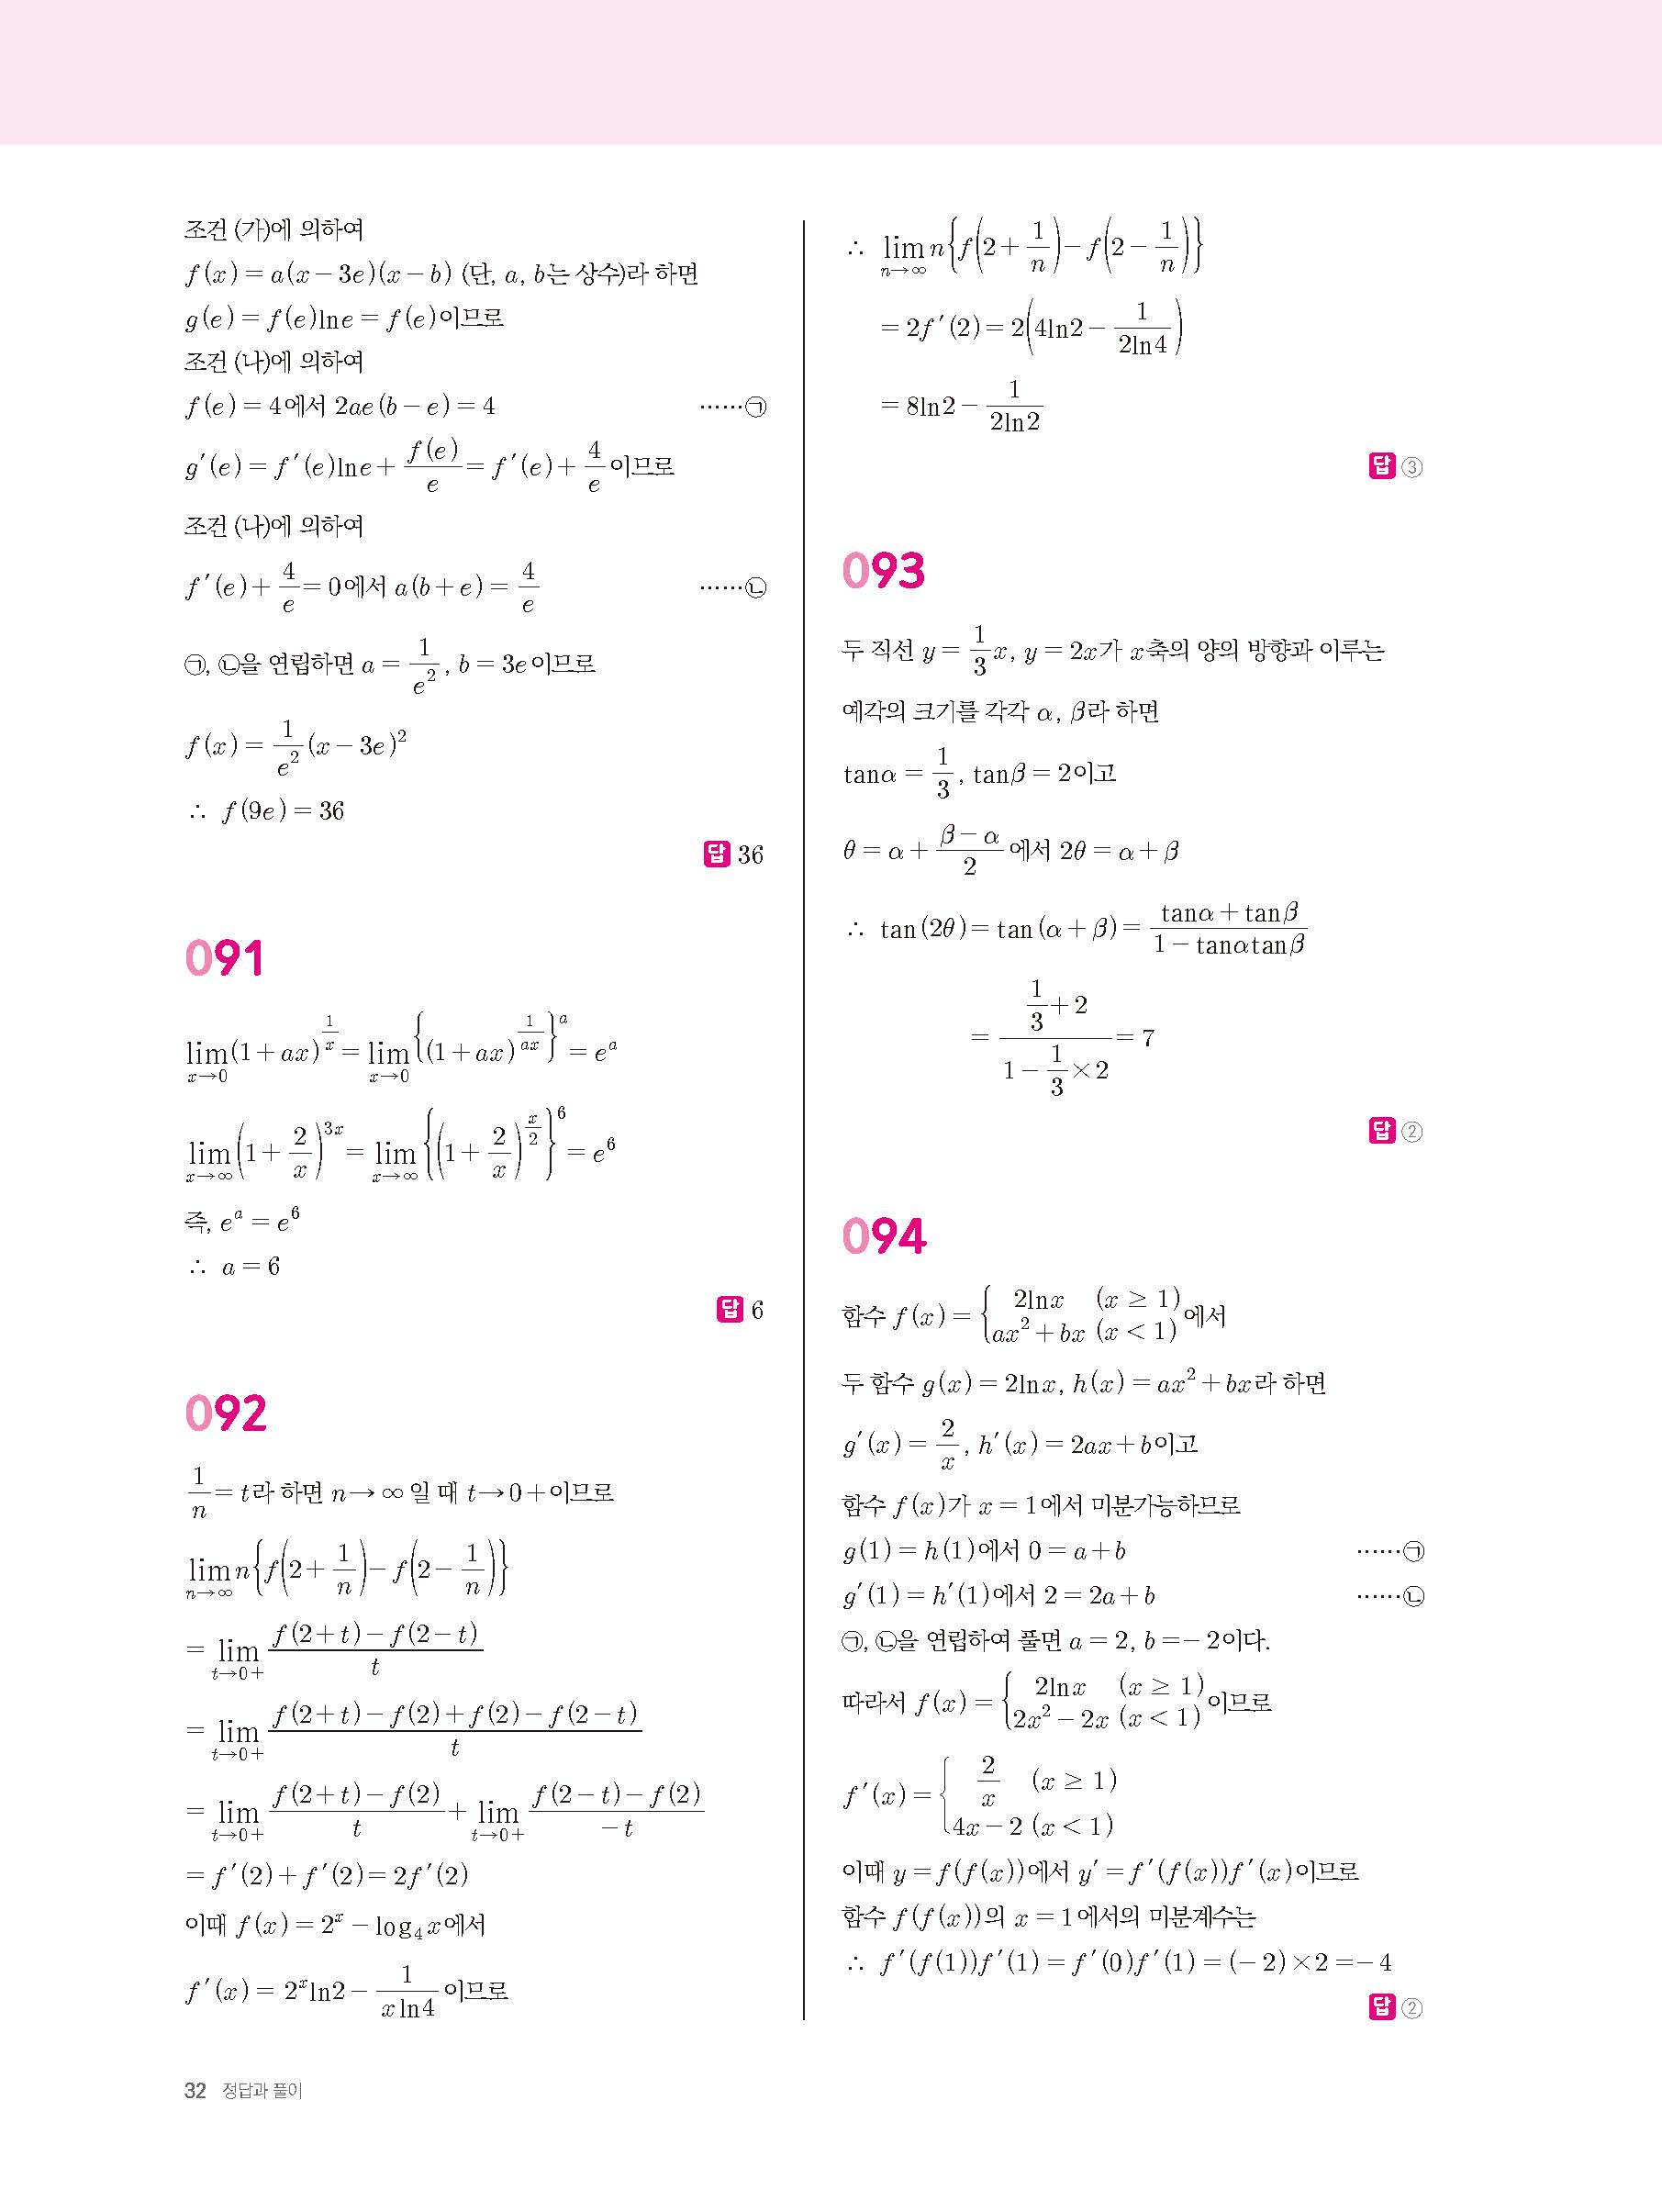 조건 (가)에 의하여
f(x) = a(x−3e)(x−b) (단, a, b는 상수)라 하면
g(e) = f(e)lne = f(e)이므로
조건 (나)에 의하여
f(e) = 4에서 2ae(b−e) = 4 ……㉠
g′(e) = f′(e)lne + f(e)/e = f′(e) + 4/e 이므로
조건 (나)에 의하여
f′(e) + 4/e = 0에서 a(b+e) = 4/e ……㉡
㉠, ㉡을 연립하면 a = 1/e², b = 3e이므로
f(x) = 1/e² (x−3e)²
∴ f(9e) = 36
답 36
091
lim_{x→0} (1+ax)^{1/x} = lim_{x→0} {(1+ax)^{1/ax}}^a = e^a
lim_{x→∞} (1+2/x)^{3x} = lim_{x→∞} {(1+2/x)^{x/2}}^6 = e^6
즉, e^a = e^6
∴ a = 6
답 6
092
1/n = t라 하면 n→∞일 때 t→0+이므로
lim_{n→∞} n{f(2+1/n)−f(2−1/n)}
= lim_{t→0+} (f(2+t)−f(2−t))/t
= lim_{t→0+} (f(2+t)−f(2)+f(2)−f(2−t))/t
= lim_{t→0+} (f(2+t)−f(2))/t + lim_{t→0+} (f(2−t)−f(2))/(−t)
= f′(2)+f′(2) = 2f′(2)
이때 f(x) = 2^x − log₄x에서
f′(x) = 2^x ln2 − 1/(x ln4) 이므로
∴ lim_{n→∞} n{f(2+1/n)−f(2−1/n)}
= 2f′(2) = 2(4ln2 − 1/(2ln4))
= 8ln2 − 1/(2ln2)
답 ③
093
두 직선 y = 1/3 x, y = 2x가 x축의 양의 방향과 이루는
예각의 크기를 각각 α, β라 하면
tanα = 1/3, tanβ = 2이고
θ = α + (β−α)/2 에서 2θ = α+β
∴ tan(2θ) = tan(α+β) = (tanα+tanβ)/(1−tanαtanβ)
= (1/3+2)/(1−1/3×2) = 7
답 ②
094
함수 f(x) = { 2lnx (x ≥ 1) ax²+bx (x < 1) 에서
두 함수 g(x) = 2lnx, h(x) = ax²+bx라 하면
g′(x) = 2/x, h′(x) = 2ax+b이고
함수 f(x)가 x = 1에서 미분가능하므로
g(1) = h(1)에서 0 = a+b ……㉠
g′(1) = h′(1)에서 2 = 2a+b ……㉡
㉠, ㉡을 연립하여 풀면 a = 2, b = −2이다.
따라서 f(x) = { 2lnx (x ≥ 1) 2x²−2x (x < 1) 이므로
f′(x) = { 2/x (x ≥ 1) 4x−2 (x < 1)
이때 y = f(f(x))에서 y′ = f′(f(x))f′(x)이므로
함수 f(f(x))의 x = 1에서의 미분계수는
∴ f′(f(1))f′(1) = f′(0)f′(1) = (−2)×2 = −4
답 ②
32 정답과 풀이